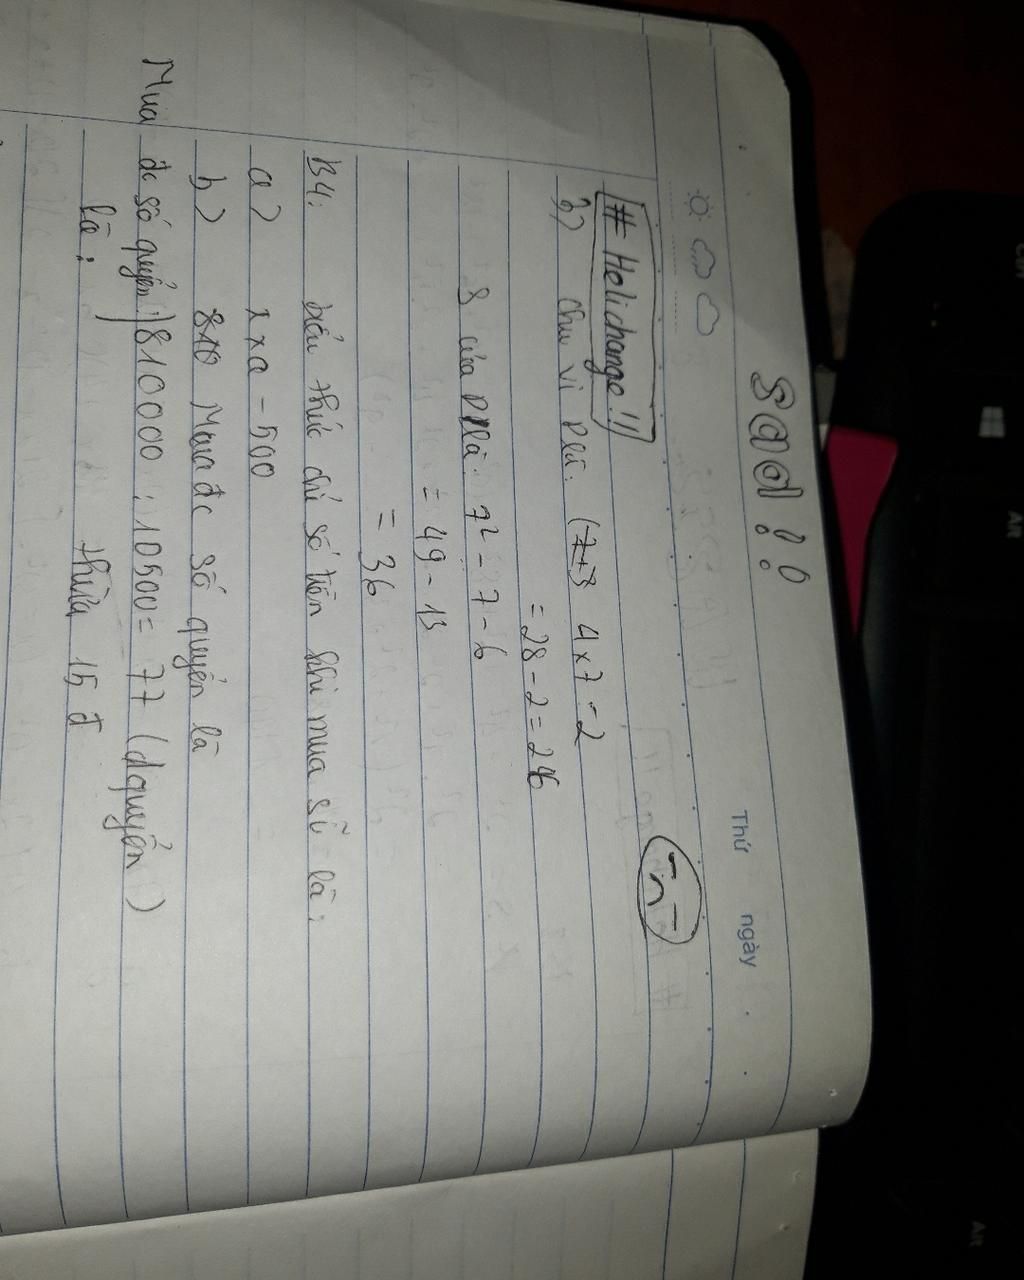 Sad !!
Thứ ngày
# Helichango!!
b) chu vi D là: (7+3 4 x 7 - 2
= 28 - 2 = 26
S của D là: 7² - 7 - 6
= 49 - 13
= 36
B4: biểu thức chỉ số tiền khi mua sỉ là:
a) x x a - 500
b) 810 Mua đc số quyển là
Mua đc số quyển 810000 : 10500 = 77 (dquyển)
là: thừa 15 đ